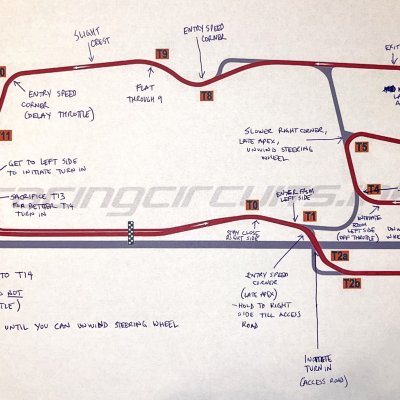 SLIGHT
CREST
ENTRY SPEED
CORNER
EXIT
T9
T8
ENTRY SPEED
CORNER
(DELAY THROTTLE)
FLAT
THROUGH 9
SLOWER RIGHT CORNER,
LATE APEX,
UNWIND STEERING
WHEEL
T5
T4
11
GET TO LEFT SIDE
TO INITIATE TURN IN
SACRIFICE T13
FOR BETTER T14
TURN IN
racingcircuits.
T0
STAY CLOSE
RIGHT SIDE
ENTER FROM
LEFT SIDE
T1
INITIATE
FROM
LEFT SIDE
(OFF THROTTLE)
T2a
T2b
ENTRY SPEED
CORNER
(LATE APEX)
- HOLD TO RIGHT
SIDE TILL ACCESS
ROAD
TO T14
NOT
UNTIL YOU CAN UNWIND STEERING WHEEL
INITIATE
TURN IN
(ACCESS ROAD)